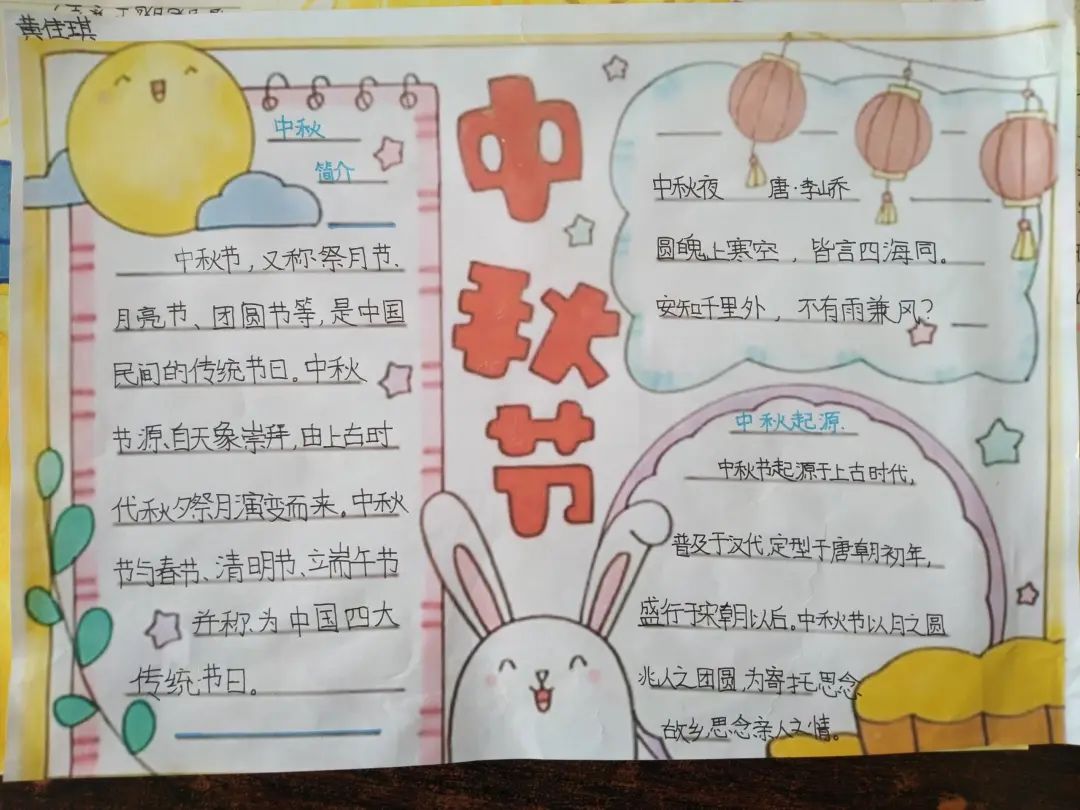 黄佳琪
中秋
简介
中秋节，又称祭月节、
月亮节、团圆节等，是中国
民间的传统节日。中秋
节源自天象崇拜，由上古时
代秋夕祭月演变而来。中秋
节与春节、清明节、端午节
并称为中国四大
传统节日。
中秋节
中秋夜 唐·李峤
圆魄上寒空，皆言四海同。
安知千里外，不有雨兼风？
中秋起源
中秋节起源于上古时代，
普及于汉代，定型于唐朝初年，
盛行于宋朝以后。中秋节以月之圆
兆人之团圆，为寄托思念
故乡，思念亲人之情。